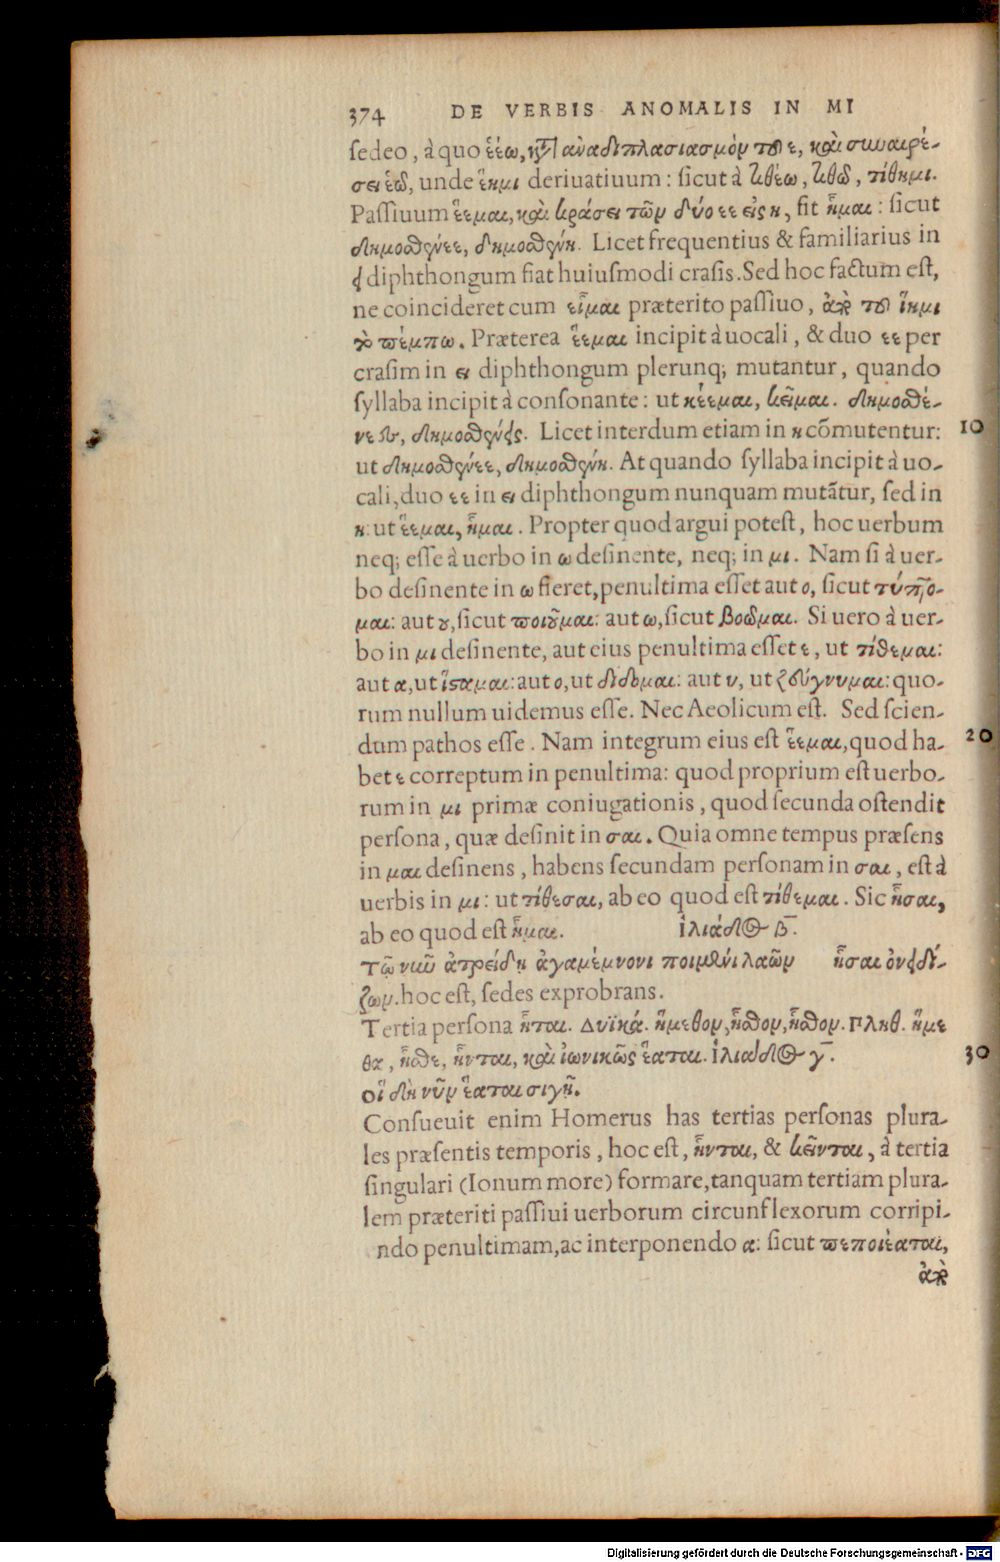 374 DE VERBIS ANOMALIS IN MI
sedeo, à quo ἑέω, κατ' ἀναδιπλασιασμὸν τοῦ ε, καὶ συναιρέ-
σει ἑῶ, unde ἕημι deriuatiuum: sicut à τιθέω, τιθῶ, τίθημι.
Passiuum ἕεμαι, καὶ κράσει τῶν δύο εε εἰς η, fit ἧμαι: sicut
δημοσθένεε, δημοσθένη. Licet frequentius & familiarius in
ει diphthongum fiat huiusmodi crasis. Sed hoc factum est,
ne coincideret cum εἷμαι præterito passiuo, ἀπὸ τοῦ ἵημι
τὸ πέμπω. Præterea ἕεμαι incipit à uocali, & duo εε per
crasim in ει diphthongum plerunq; mutantur, quando
syllaba incipit à consonante: ut κέεμαι, κεῖμαι. δημοσθέ-
νεες, δημοσθένεις. Licet interdum etiam in η cõmutentur: 10
ut δημοσθένεε, δημοσθένη. At quando syllaba incipit à uo-
cali, duo εε in ει diphthongum nunquam mutãtur, sed in
η: ut ἕεμαι, ἧμαι. Propter quod argui potest, hoc uerbum
neq; esse à uerbo in ω desinente, neq; in μι. Nam si à uer-
bo desinente in ω fieret, penultima esset aut ο, sicut τύπτο-
μαι: aut ου, sicut ποιοῦμαι: aut ω, sicut βοῶμαι. Si uero à uer-
bo in μι desinente, aut eius penultima esset ε, ut τίθεμαι:
aut α, ut ἵσταμαι: aut ο, ut δίδομαι: aut υ, ut ζεύγνυμαι: quo-
rum nullum uidemus esse. Nec Aeolicum est. Sed scien-
dum pathos esse. Nam integrum eius est ἕεμαι, quod ha- 20
bet ε correptum in penultima: quod proprium est uerbo-
rum in μι primæ coniugationis, quod secunda ostendit
persona, quæ desinit in σαι. Quia omne tempus præsens
in μαι desinens, habens secundam personam in σαι, est à
uerbis in μι: ut τίθεσαι, ab eo quod est τίθεμαι. Sic ἧσαι,
ab eo quod est ἧμαι. ἰλιάδος β̅.
τῷ νῦν ἀτρείδῃ ἀγαμέμνονι ποιμένι λαῶν ἧσαι ὀνειδί-
ζων. hoc est, sedes exprobrans.
Tertia persona ἧται. Δυϊκά. ἥμεθον, ἧσθον, ἧσθον. Πληθ. ἥμε
θα, ἧσθε, ἧνται, καὶ ἰωνικῶς ἕαται. ἰλιάδος γ̅. 30
οἳ δὴ νῦν ἕαται σιγῇ.
Consueuit enim Homerus has tertias personas plura-
les præsentis temporis, hoc est, ἧνται, & κεῖνται, à tertia
singulari (Ionum more) formare, tanquam tertiam plura-
lem præteriti passiui uerborum circunflexorum corripi-
ndo penultimam, ac interponendo α: sicut πεποιέαται,
ἀπὸ
Digitalisierung gefördert durch die Deutsche Forschungsgemeinschaft - DFG